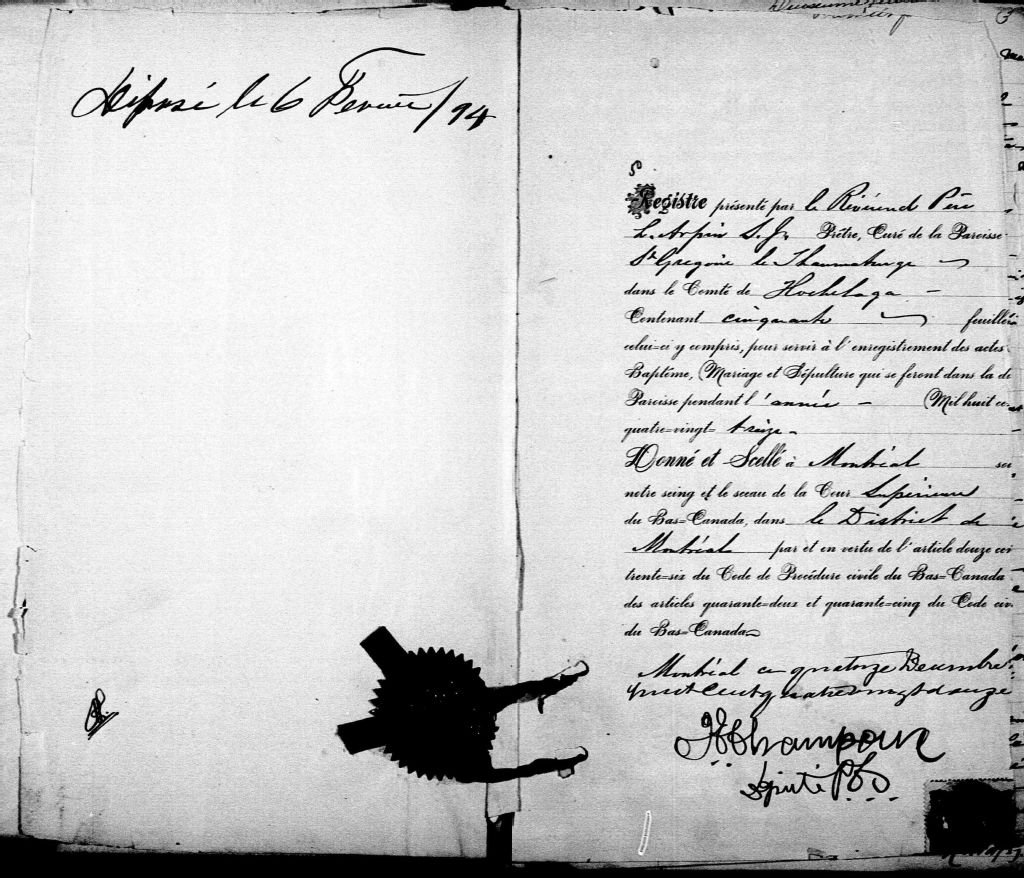 Déposé le 6 Fevrier/94
3
Registre présenté par le Révérend Père
L. Arpin S.J. Prêtre, Curé de la Paroisse
St Gregoire le Thaumaturge
dans le Comté de Hochelaga –
Contenant cinquante feuillets
celui=ci y compris, pour servir à l'enregistrement des actes
Baptême, Mariage et Sépulture qui se feront dans la di
Paroisse pendant l'année – Mil huit ce
quatre=vingt= treize –
Donné et Scellé à Montréal sou
notre seing et le sceau de la Cour Supérieure
du Bas=Canada, dans le District de
Montréal par et en vertu de l'article douze cen
trente=six du Code de Procédure civile du Bas=Canada
des articles quarante=deux et quarante=cinq du Code civ
du Bas=Canada
Montréal ce quatorze Decembre
huit Cent quatrevingt douze
Député P.C.S.